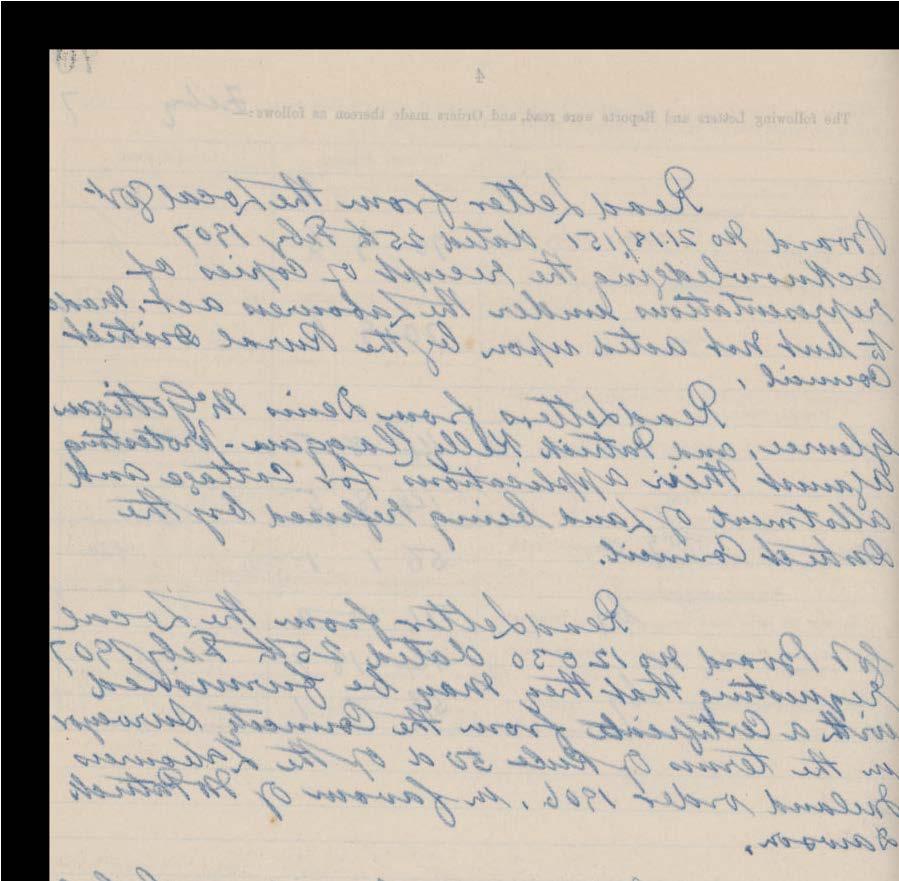 4
The following Letters and Reports were read, and Orders made thereon as follows:—
Read Letter from the Local Govt
Board No 2118/151 dated 25th Feby 1907
acknowledging the receipt of copies of
representations under the Labourers act. made
to but not acted upon by the Rural District
Council.
Read Letters from Denis McGettigan
Glenee, and Patrick Kelly Claggan - protesting
against their applications for Cottage and
allotment of Land being refused by the
District Council.
Read Letter from the Local
Govt Board No 12050 dated 25th Feby 1907
requesting that they may be furnished
with a Certificate from the County Surveyor
in the terms of Rule 50 d of the Labourers
Ireland order 1906. in favour of Mr Patrick
Dawson.